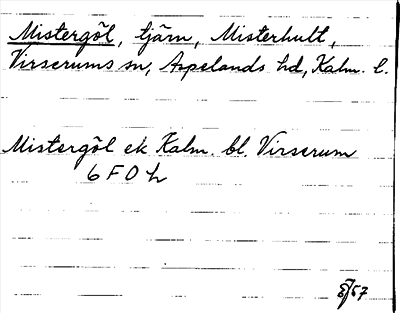 Mistergöl, tjärn, Misterhult,
Virserums sn, Aspelands hd, Kalm. l.
Mistergöl ek Kalm. bl. Virserum
6 F 0 h
57